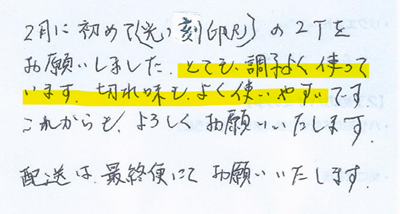 2月に初めて(光い刻印尺)の2丁を
お願いしました。とても、調子よく使って
います。切れ味も、よく使いやすいです
これからも、よろしくお願いいたします。
配送は、最終便にてお願いいたします。